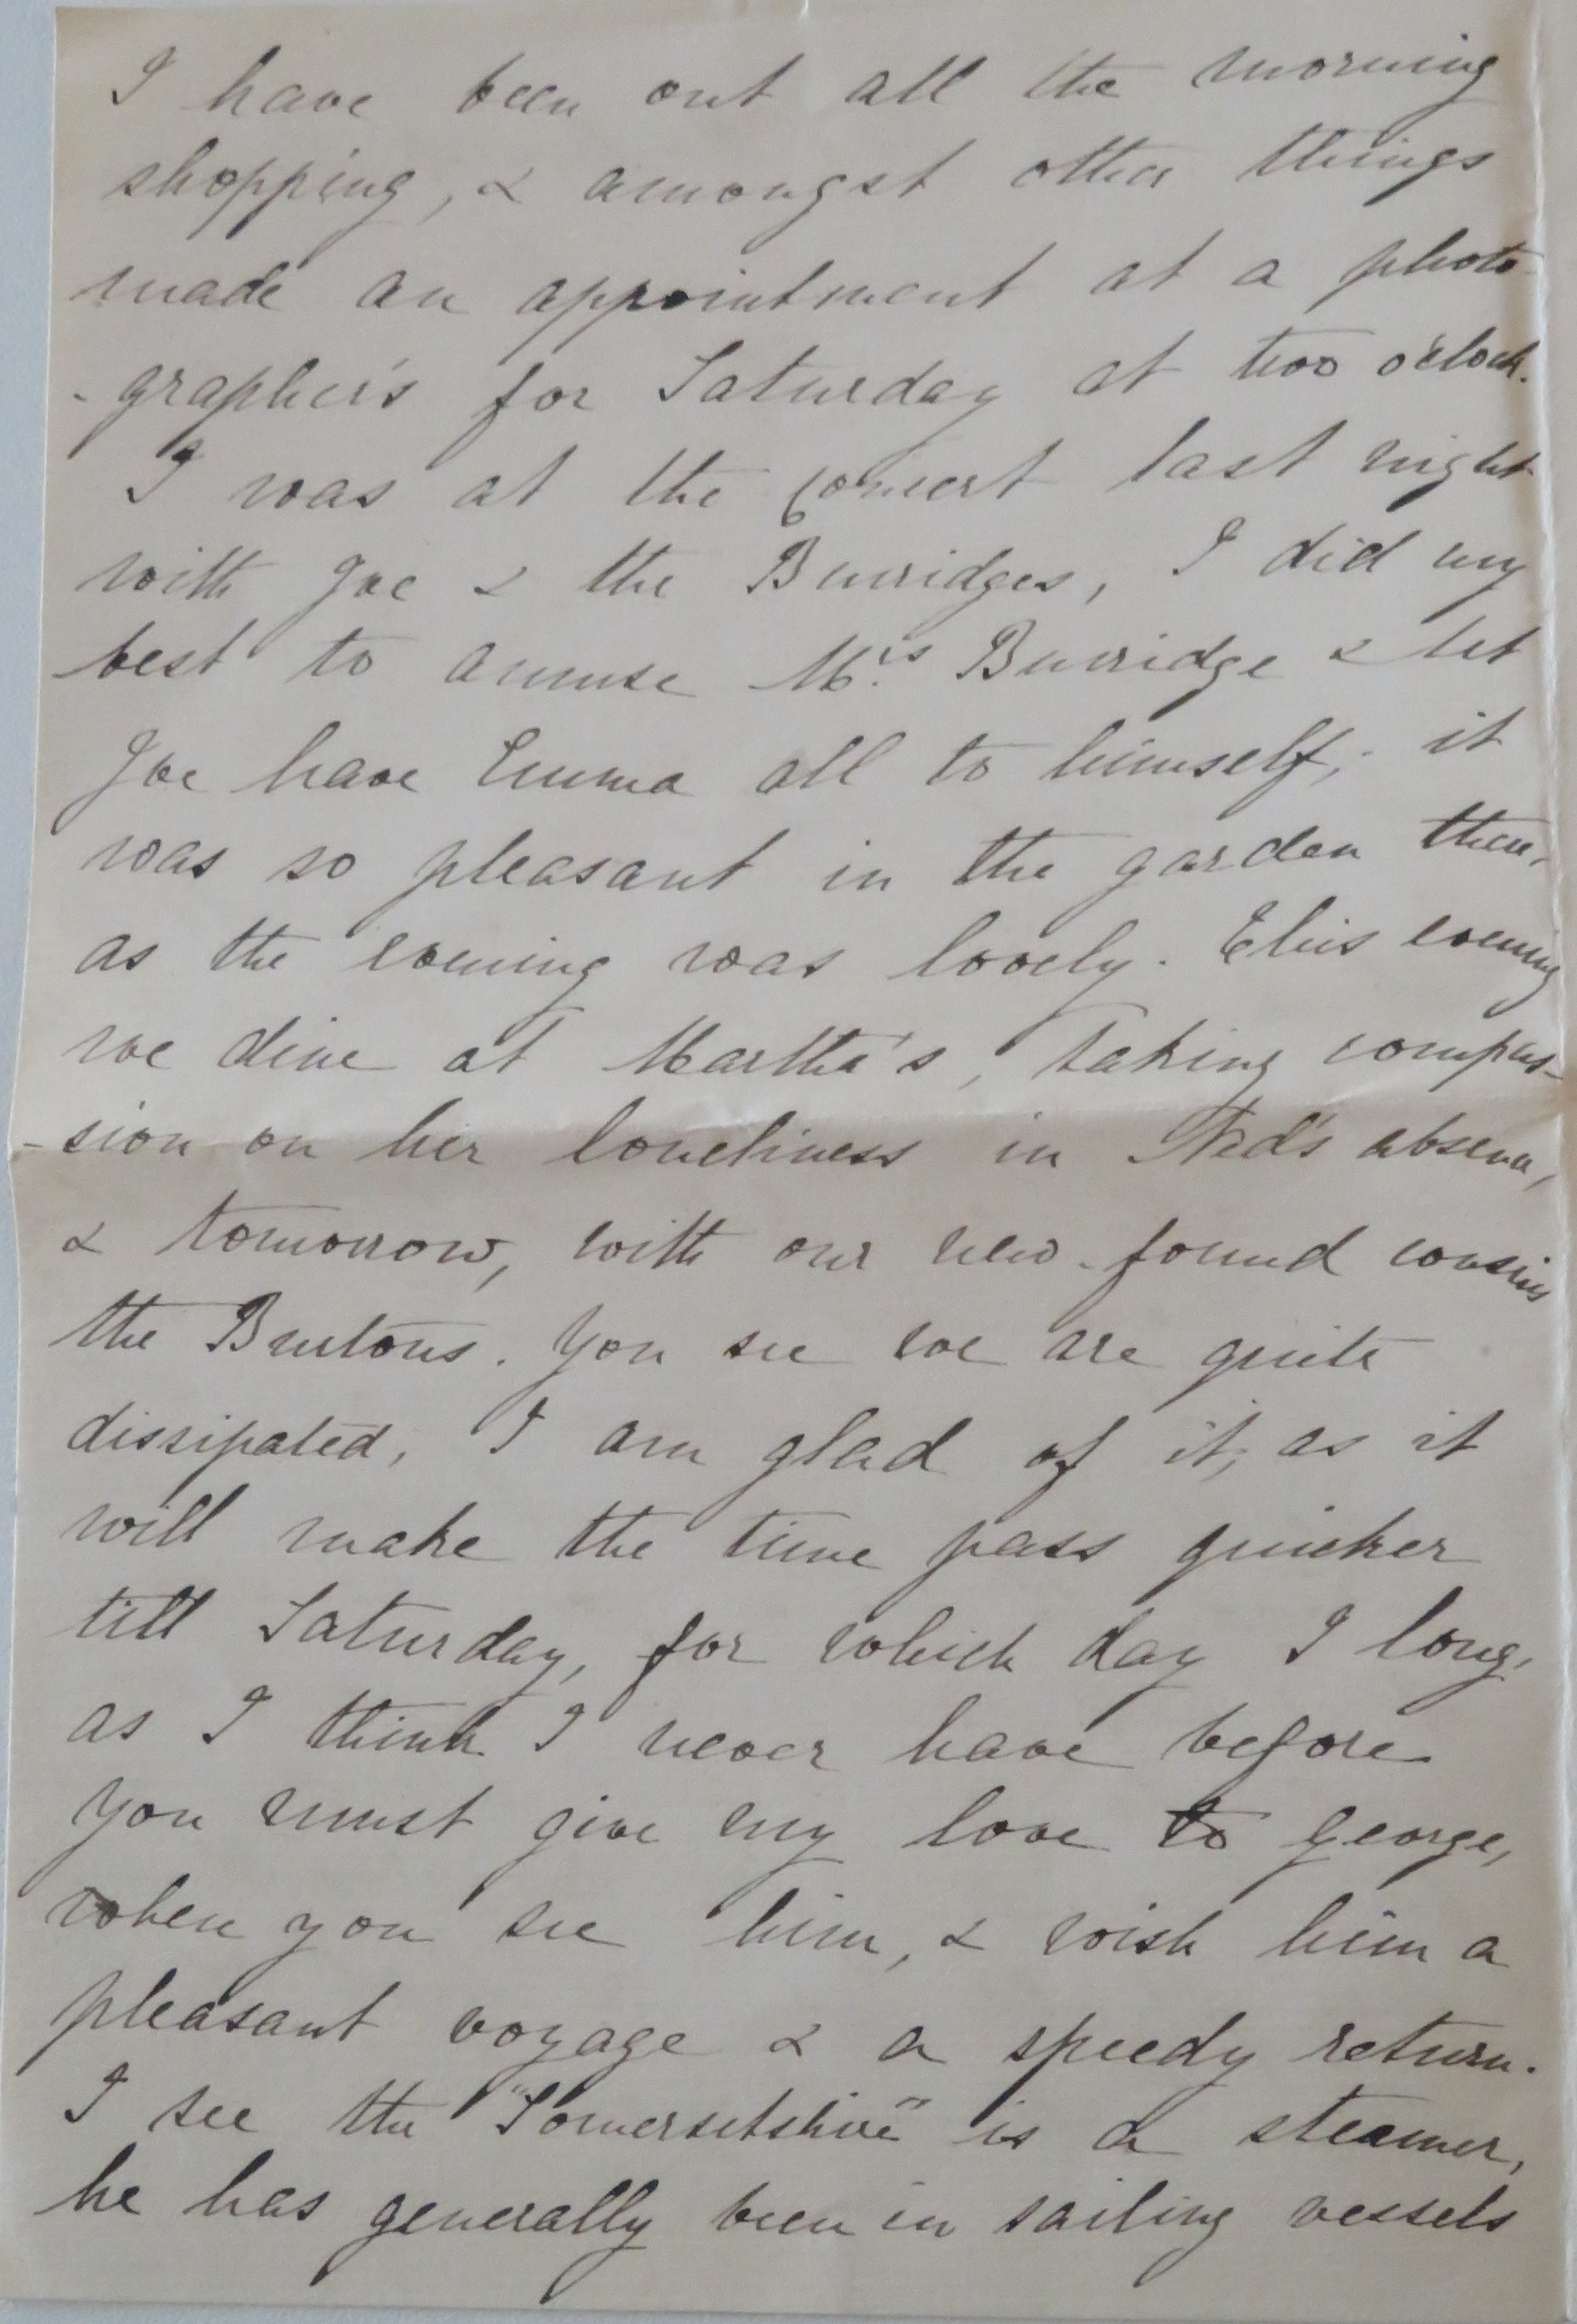 I have been out all the morning
shopping, & amongst other things
made an appointment at a photo-
- grapher's for Saturday at two o'clock.
I was at the concert last night
with Joe & the Burridges, I did my
best to amuse Mrs Burridge & let
Joe have Emma all to himself; it
was so pleasant in the garden there,
as the evening was lovely. This evening
we dine at Martha's, taking compas-
-sion on her loneliness in Ned's absence,
& tomorrow, with our new-found cousins
the Bustons. You see we are quite
dissipated, I am glad of it, as it
will make the time pass quicker
till Saturday, for which day I long,
as I think I never have before
You must give my love to George,
when you see him, & wish him a
pleasant voyage & a speedy return.
I see the "Somersetshire" is a steamer,
he has generally been in sailing vessels